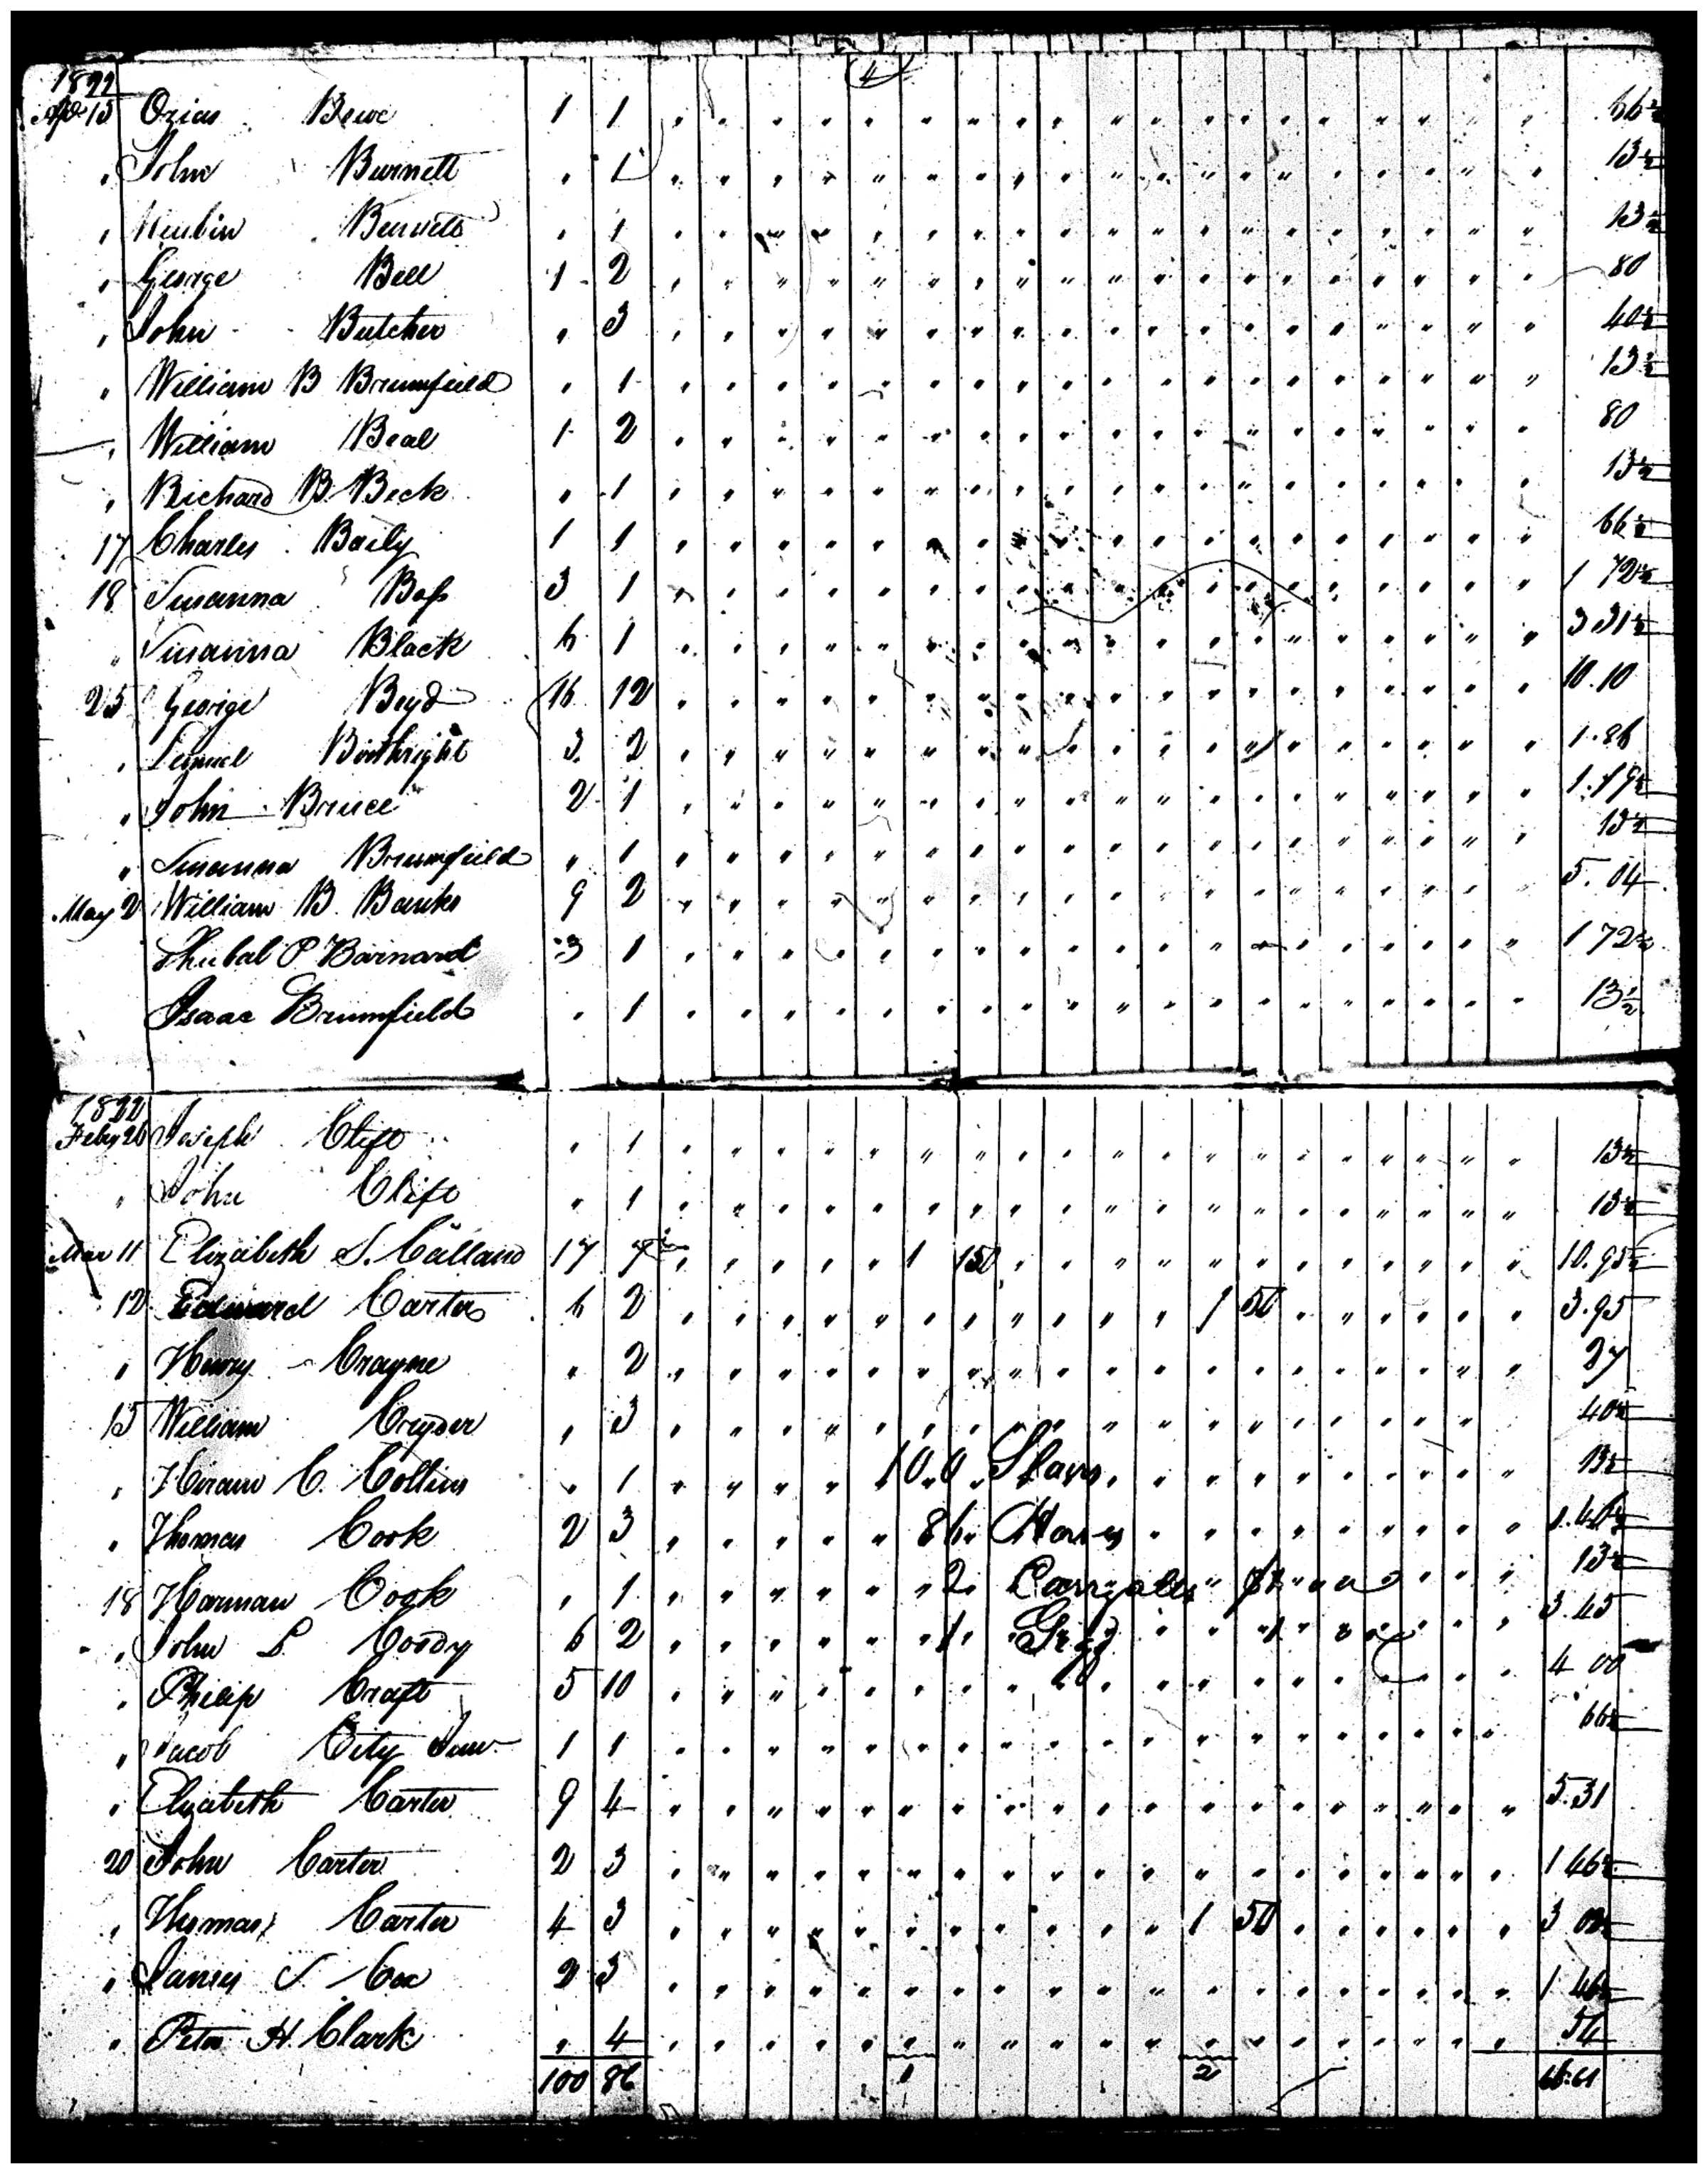 4
1822
Apl 15 Ozias Bewe 1 1 66½
" John Burnett " 1 13½
" Reubin Bennett " 1 13½
" George Bell 1 2 80
" John Butcher " 3 40½
" William B Brumfield " 1 13½
" William Beal 1 2 80
" Richard B. Beck " 1 13½
17 Charles Baily 1 1 66½
18 Susanna Bass 3 1 1 72½
" Susanna Black 6 1 3 31½
25 George Boyd 16 12 10.10
" Lemuel Birthright 3 2 1.86
" John Bruce 2 1 1.19½
" Susanna Brumfield " 1 13½
May 2 William B. Banks 9 2 5.04
Shubal P Barnard 3 1 1 72½
Isaac Brumfield " 1 13½
1822
Feby 26 Joseph Clift " 1 13½
" John Clift " 1 13½
Mar 11 Elizabeth S. Calland 17 7 1 150 10.95½
12 Edward Carter 6 2 1 50 3.95
" Henry Crayne " 2 27
15 William Cryder " 3 40½
" Hiram C. Collins " 1 100 Slaves 13½
" Thomas Cook 2 3 86 Horses 1.46½
18 Harman Cook " 1 2 Carryalls 13½
" John L Coody 6 2 1 Gigg 3.45
" Philip Craft 5 10 4 00
" Jacob City Junr 1 1 66½
" Elizabeth Carter 9 4 5.31
20 John Carter 2 3 1 46½
" Thomas Carter 4 3 1 50 3 02½
" James S. Cox 2 3 1 46½
" Peter H. Clark " 4 54
100 86 1 2 66.61